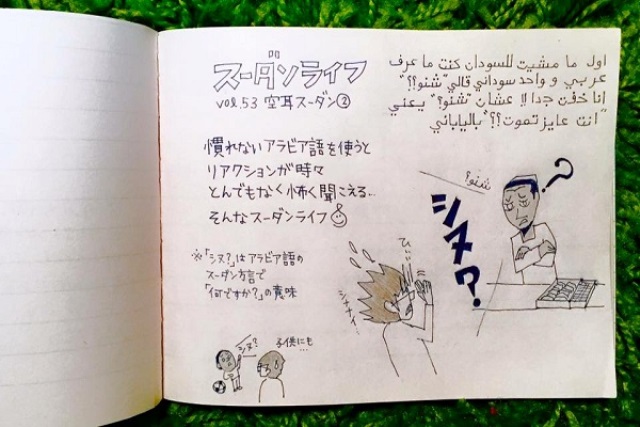 スーダンライフ
vol.53 空耳スーダン②
慣れないアラビア語を使うと
リアクションが時々
とんでもなく怖く聞こえる…
そんなスーダンライフ
※「シヌ?」はアラビア語の
スーダン方言で
「何ですか?」の意味
シヌ?
子供にも
اول ما مشيت للسودان كنت ما عرف
عربي و واحد سوداني قالي "شنو؟؟"
أنا خفت جدا لا عشان "شنو؟" يعني
"انت عايز تموت؟؟" بالياباني
شنو؟
シヌ?
ひぃぃ
シナナイ…